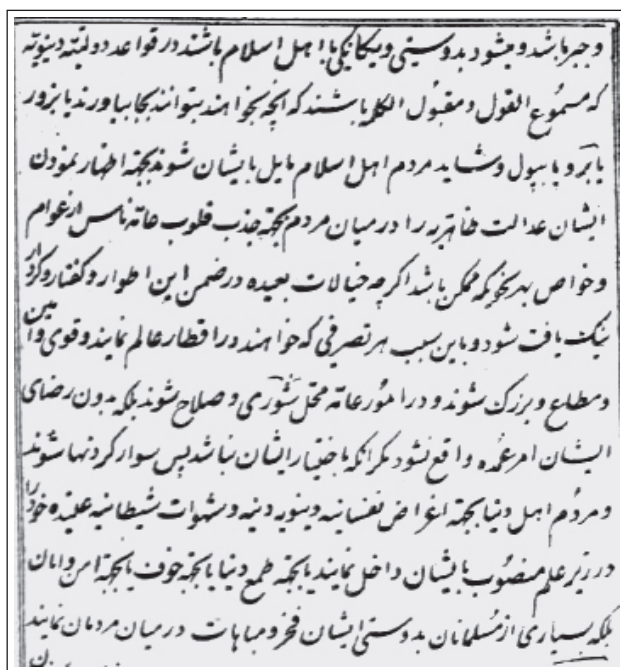 و جبر باشد و میشود بدوستی و یکانکی با اهل اسلام باشند در قواعد دولتیه دینویه
که مسموع القول و مقبول الکلمه باشند که انچه بخواهند بتوانند بجا بیاورند یا بزور
یا برو یا بپول و شاید مردم اهل اسلام مایل بایشان شوند بجهة اظهار نمودن
ایشان عدالت ظاهریه را در میان مردم بجهة جذب قلوب عامه ناس از عوام
و خواص بهر نحویکه ممکن باشد اکر چه خیالات بعیده در ضمن این اطوار و کفتار و کردار
نیک یافت شود و باین سبب هر تصرفی که خواهند در اقطار عالم نمایند و قوی و امین
و مطاع و بزرک شوند و در امور عامه محل شوری و صلاح شوند بلکه بدون رضای
ایشان امر عمده واقع نشود مکر انکه باختیار ایشان نباشد پس سوار کردنها شوند
و مردم اهل دنیا بجهة اغراض نفسانیه دینویه دنیه و شهوات شیطانیه علیده خود را
در زیر علم منصوب بایشان داخل نمایند یا بجهة طمع دنیا یا بجهة خوف یا بجهة امن و امان
بلکه بسیاری از مسلمانان بدوستی ایشان فخر و مباهات در میان مردمان نمایند